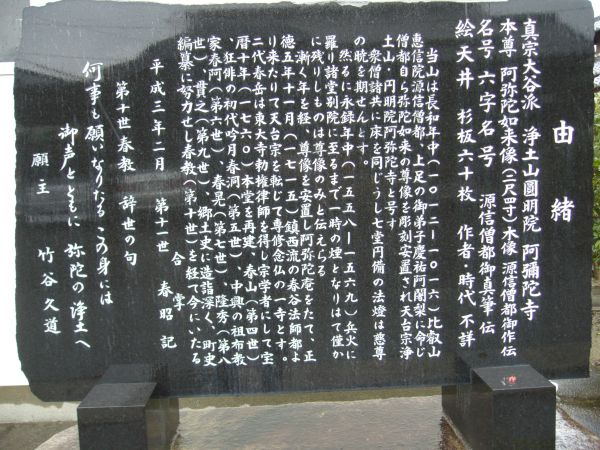 由緒
真宗大谷派 浄土山圓明院 阿彌陀寺
本尊 阿弥陀如来像(二尺四寸)木像 源信僧都御作伝
名号 六字名号 源信僧都御真筆 伝
絵天井 杉板六十枚 作者・時代 不詳
当山は長和年中(一〇一二—一〇一六)比叡山
恵信院源信僧都、上足の御弟子慶祐阿闍梨に命じ
僧都自ら弥陀如来の尊像を彫刻安置され天台宗浄
土山・円明院阿弥陀寺と号す。
衆僧諸共に床を同じうし七堂円備の法燈は慈尊
の暁を期せんとす。
然るに永録年中(一五五八—一五六九)兵火に
罹り諸堂別院に至るまで一時の煙となりはて僅か
に残りしものは尊像のみと伝えらる。
漸く年を経、尊像を安置し阿弥陀庵をたて、正
徳五年十一月(一七一五)鎮西流の春谷法師都よ
り来たりて天台宗を転じて専修念仏の一寺とす。
二代春岳は東大寺勅権律師を得し宗学者にして宝
暦十年(一七六〇)本堂を再建、春山(第四世)
、狂俳の初代吟月春洞(第五世)、中興の祖布教
家春河(第六世)、春晃(第七世)、隆秀(第八
世)、貫之(第九世)、郷土史に造詣深く、町史
編纂に努力せし春教(第十世)を経て今にいたる
合掌
平成三年二月 第十一世 春昭 記
第十世春教 辞世の句
何事も願いなりたる この身には
御声とともに 弥陀の浄土へ
願主 竹谷久道